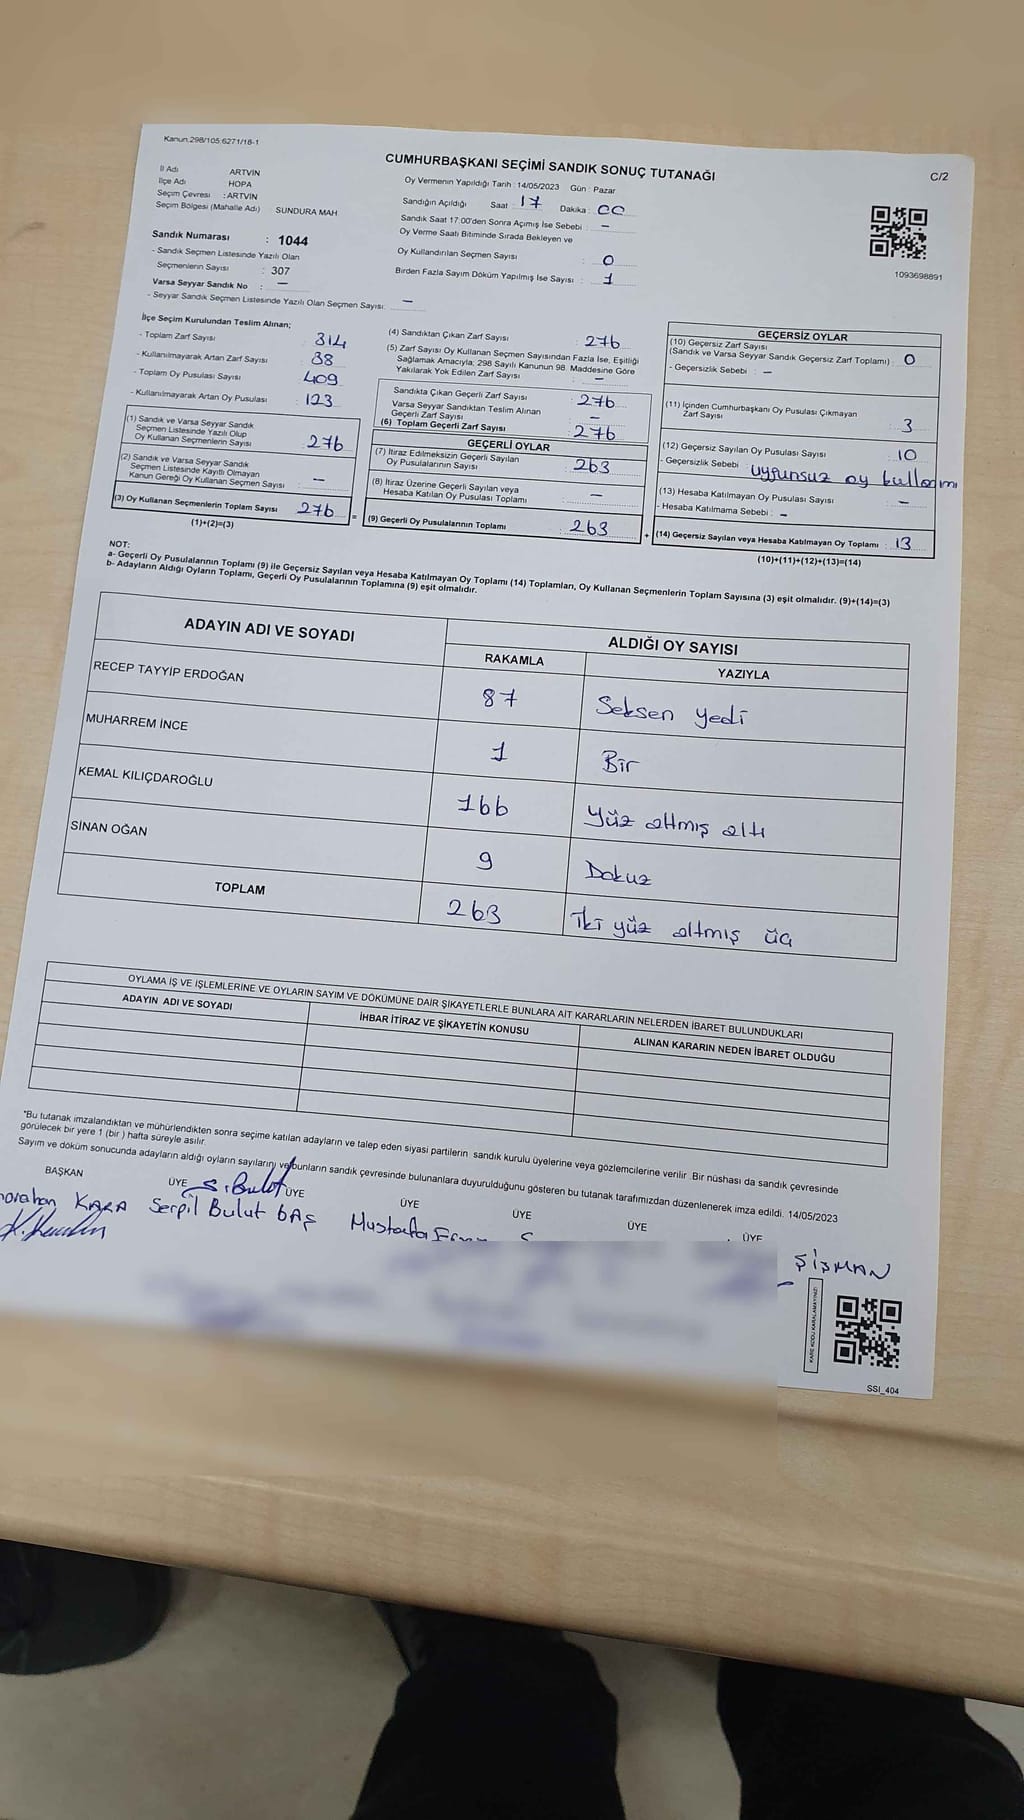 Kanun:298/105:6271/18-1
CUMHURBAŞKANI SEÇİMİ SANDIK SONUÇ TUTANAĞI
C/2
İl Adı ARTVIN
İlçe Adı HOPA
Seçim Çevresi : ARTVİN
Seçim Bölgesi (Mahalle Adı) SUNDURA MAH
Oy Vermenin Yapıldığı Tarih : 14/05/2023 Gün : Pazar
Sandığın Açıldığı Saat : 17 Dakika : 00
Sandık Saat 17:00'den Sonra Açımış İse Sebebi : -
Oy Verme Saati Bitiminde Sırada Bekleyen ve
Oy Kullandırılan Seçmen Sayısı : 0
Birden Fazla Sayım Döküm Yapılmış İse Sayısı : 1
1093698891
Sandık Numarası : 1044
- Sandık Seçmen Listesinde Yazılı Olan
Seçmenlerin Sayısı : 307
Varsa Seyyar Sandık No : -
- Seyyar Sandık Seçmen Listesinde Yazılı Olan Seçmen Sayısı: -
İlçe Seçim Kurulundan Teslim Alınan;
- Toplam Zarf Sayısı : 314
- Kullanılmayarak Artan Zarf Sayısı : 38
- Toplam Oy Pusulası Sayısı : 409
- Kullanılmayarak Artan Oy Pusulası : 123
(1) Sandık ve Varsa Seyyar Sandık
Seçmen Listesinde Yazılı Olup
Oy Kullanan Seçmenlerin Sayısı : 276
(2) Sandık ve Varsa Seyyar Sandık
Seçmen Listesinde Kayıtlı Olmayan
Kanun Gereği Oy Kullanan Seçmen Sayısı : -
(3) Oy Kullanan Seçmenlerin Toplam Sayısı : 276
(1)+(2)=(3)
(4) Sandıktan Çıkan Zarf Sayısı : 276
(5) Zarf Sayısı Oy Kullanan Seçmen Sayısından Fazla İse, Eşitliği
Sağlamak Amacıyla; 298 Sayılı Kanunun 98. Maddesine Göre
Yakılarak Yok Edilen Zarf Sayısı : -
Sandıkta Çıkan Geçerli Zarf Sayısı : 276
Varsa Seyyar Sandıktan Teslim Alınan
Geçerli Zarf Sayısı : -
(6) Toplam Geçerli Zarf Sayısı : 276
GEÇERLİ OYLAR
(7) İtiraz Edilmeksizin Geçerli Sayılan
Oy Pusulalarının Sayısı : 263
(8) İtiraz Üzerine Geçerli Sayılan veya
Hesaba Katılan Oy Pusulası Toplamı : -
(9) Geçerli Oy Pusulalarının Toplamı : 263
GEÇERSİZ OYLAR
(10) Geçersiz Zarf Sayısı
(Sandık ve Varsa Seyyar Sandık Geçersiz Zarf Toplamı) : 0
- Geçersizlik Sebebi : -
(11) İçinden Cumhurbaşkanı Oy Pusulası Çıkmayan
Zarf Sayısı : 3
(12) Geçersiz Sayılan Oy Pusulası Sayısı : 10
- Geçersizlik Sebebi : uygunsuz oy kullanımı
(13) Hesaba Katılmayan Oy Pusulası Sayısı : -
- Hesaba Katılmama Sebebi : -
(14) Geçersiz Sayılan veya Hesaba Katılmayan Oy Toplamı : 13
(10)+(11)+(12)+(13)=(14)
NOT:
a- Geçerli Oy Pusulalarının Toplamı (9) ile Geçersiz Sayılan veya Hesaba Katılmayan Oy Toplamı (14) Toplamları, Oy Kullanan Seçmenlerin Toplam Sayısına (3) eşit olmalıdır. (9)+(14)=(3)
b- Adayların Aldığı Oyların Toplamı, Geçerli Oy Pusulalarının Toplamına (9) eşit olmalıdır.
ADAYIN ADI VE SOYADI ALDIĞI OY SAYISI
RAKAMLA YAZIYLA
RECEP TAYYİP ERDOĞAN 87 Seksen yedi
MUHARREM İNCE 1 Bir
KEMAL KILIÇDAROĞLU 166 Yüz altmış altı
SİNAN OĞAN 9 Dokuz
TOPLAM 263 İki yüz altmış üç
OYLAMA İŞ VE İŞLEMLERİNE VE OYLARIN SAYIM VE DÖKÜMÜNE DAİR ŞİKAYETLERLE BUNLARA AİT KARARLARIN NELERDEN İBARET BULUNDUKLARI
ADAYIN ADI VE SOYADI İHBAR İTİRAZ VE ŞİKAYETİN KONUSU ALINAN KARARIN NEDEN İBARET OLDUĞU
*Bu tutanak imzalandıktan ve mühürlendikten sonra seçime katılan adayların ve talep eden siyasi partilerin sandık kurulu üyelerine veya gözlemcilerine verilir. Bir nüshası da sandık çevresinde
görülecek bir yere 1 (bir ) hafta süreyle asılır.
Sayım ve döküm sonucunda adayların aldığı oyların sayılarını ve bunların sandık çevresinde bulunanlara duyurulduğunu gösteren bu tutanak tarafımızdan düzenlenerek imza edildi. 14/05/2023
BAŞKAN ÜYE ÜYE ÜYE ÜYE ÜYE ÜYE
S.Bulut
KARA Serpil Bulut BAŞ Mustafa
ŞİŞMAN
KARE KODU KARALAMAYINIZ!
SSI_404